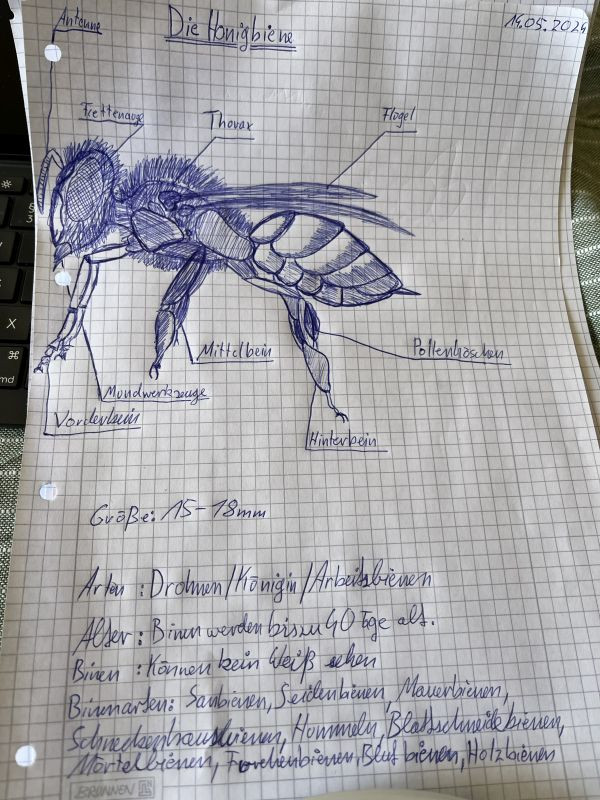 Antenne
Die Honigbiene
14.05.2024
Facettenauge
Thorax
Flügel
Mittelbein
Pollenhöschen
Mundwerkzeuge
Vorderbein
Hinterbein
Größe: 15-18mm
Arten : Drohnen/Königin/Arbeitsbienen
Alter : Binen werden bis zu 40 Tage alt.
Binen : Können kein Weiß sehen
Binenarten: Sanbienen, Seidenbienen, Mauerbienen,
Schneckenhausbienen, Hummeln, Blattschneidebienen,
Mörtelbienen, Furchenbienen, Blutbienen, Holzbienen
BRUNNEN